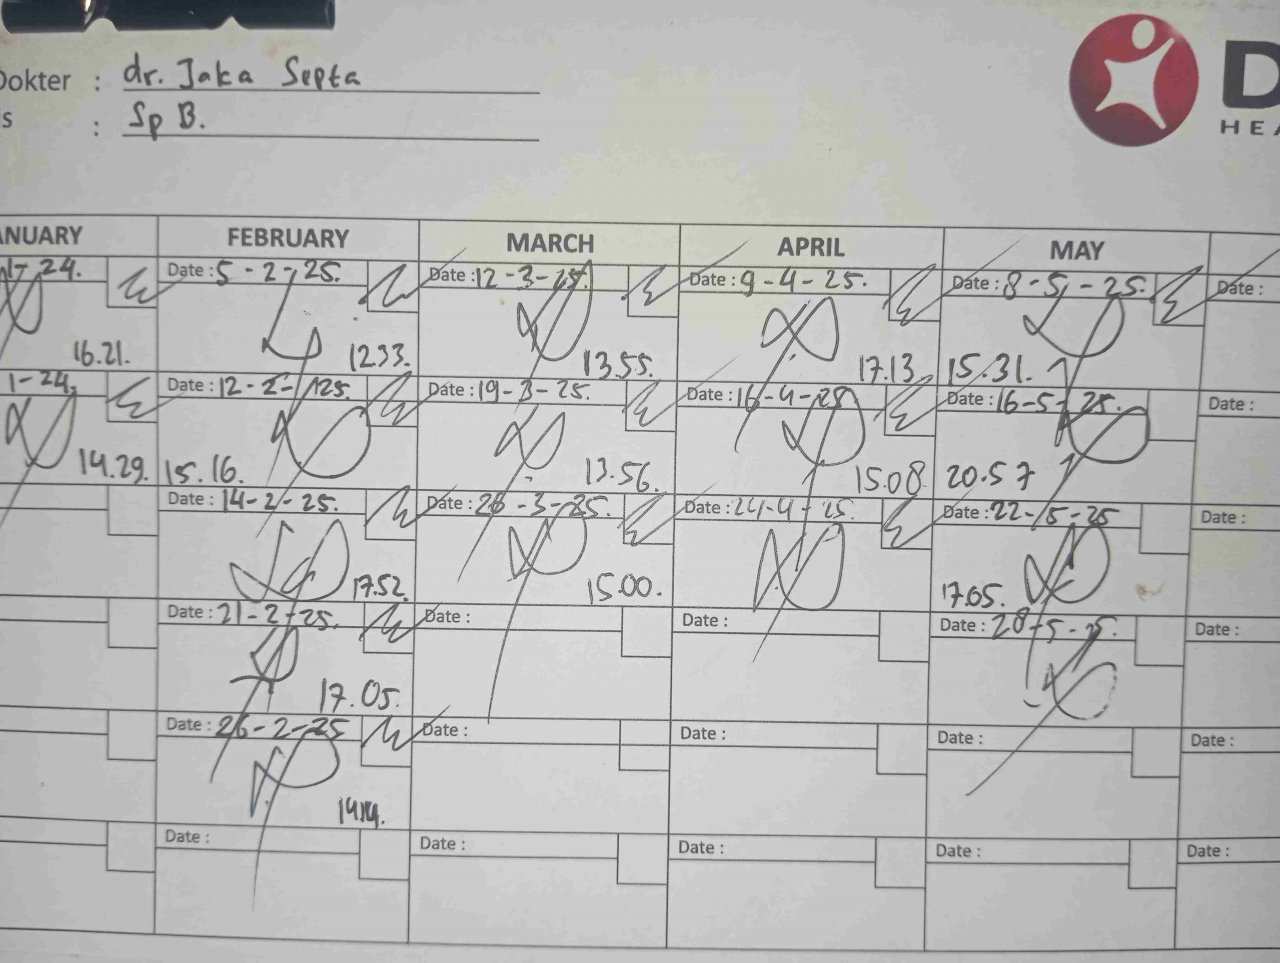 Dokter : dr. Jaka Septa
s : Sp B.
D
HEA
ANUARY FEBRUARY MARCH APRIL MAY
1-24. Date : 5-2-25. Date : 12-3-25. Date : 9-4-25. Date : 8-5-25. Date :
16.21. 1233. 13.55. 17.13 15.31.
1-24. Date : 12-2-25. Date : 19-3-25. Date : 16-4-25 Date : 16-5-25. Date :
14.29. 15.16. 13.56. 15.08 20.57
Date : 14-2-25. Date : 26-3-25. Date : 24-4-25. Date : 22-5-25 Date :
17.52. 15.00. 17.05.
Date : 21-2-25. Date : Date : Date : 28-5-25. Date :
17.05.
Date : 26-2-25 Date : Date : Date : Date :
1414.
Date : Date : Date : Date : Date :